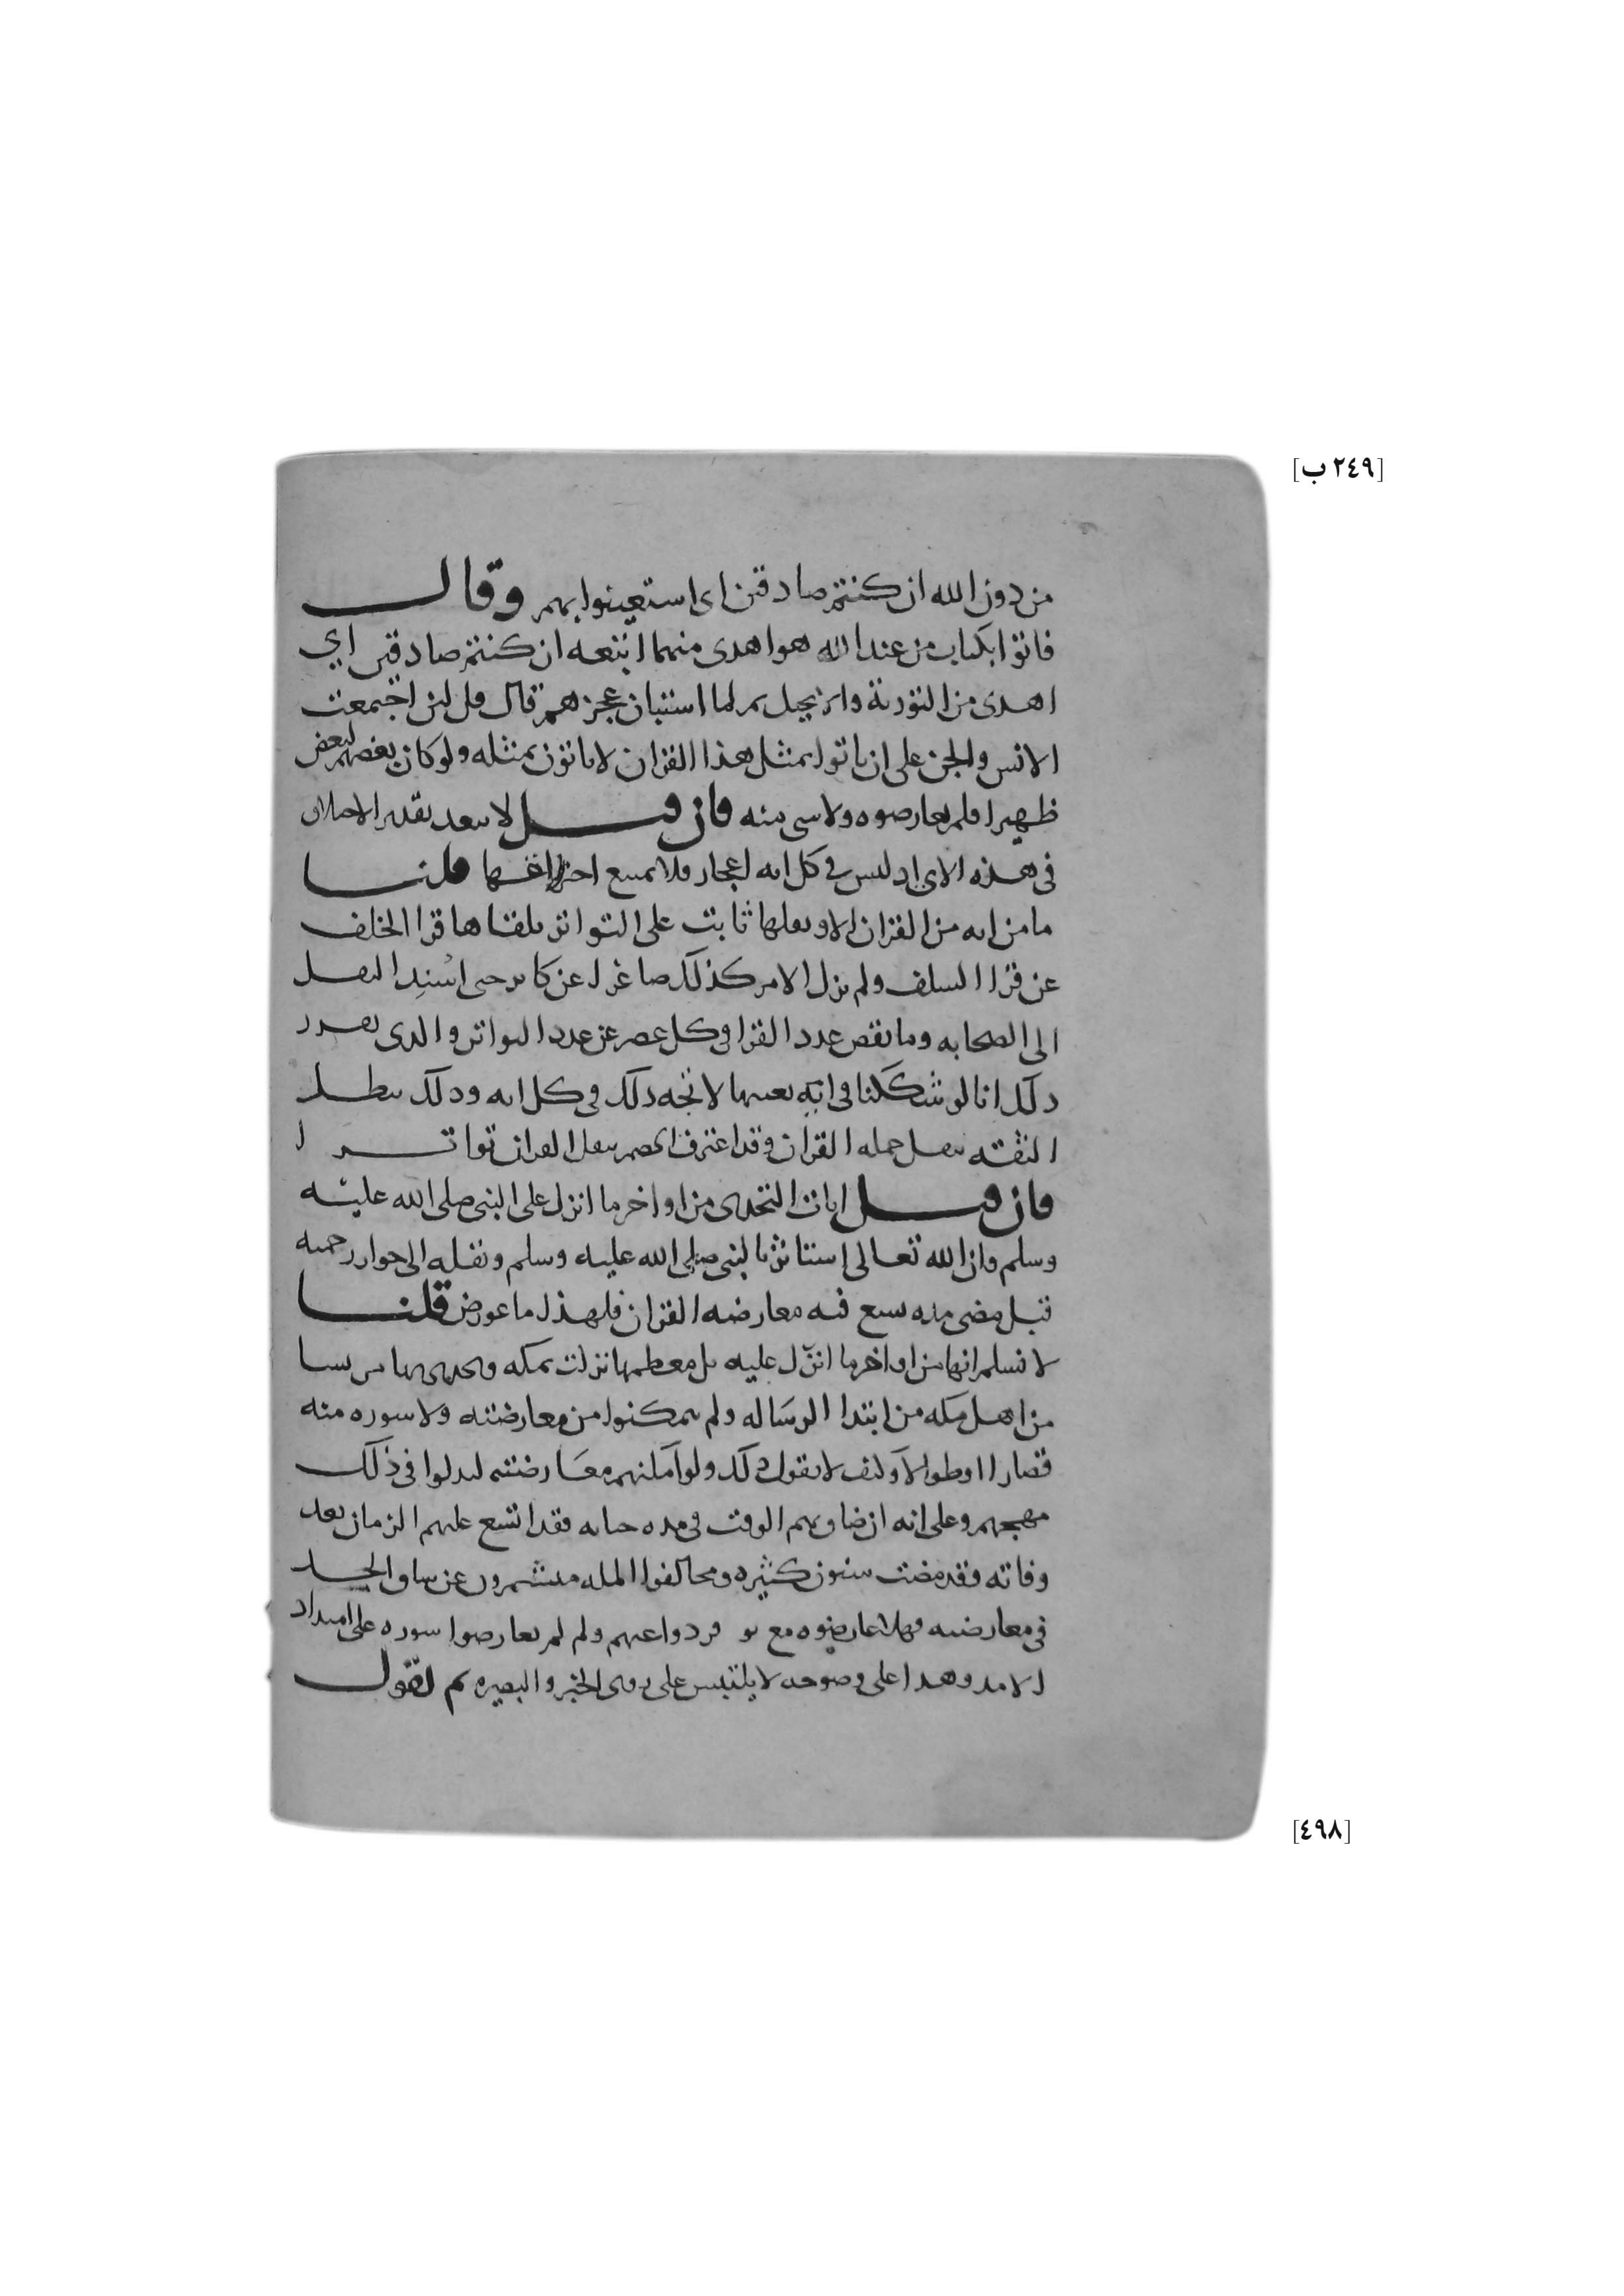 [٢٤٩ ب]
من دون الله ان كنتم صادقين اى استعينوا بهم وقال
فاتوا بكتاب من عند الله هو اهدى منهما اتبعه ان كنتم صادقين اي
اهدى من التورية والانجيل ثم لما استبان عجزهم قال قل لئن اجتمعت
الانس والجن على ان ياتوا بمثل هذا القران لا ياتون بمثله ولو كان بعضهم لبعض
ظهيرا فلم يعارضوه ولا شى منه فان قيل لا يبعد تقدير الاختلاق
فى هذه الاى اذ ليس فى كل ايه اعجاز فلا يمتنع قلنا
ما من ايه من القران الا ونقلها ثابت على التواتر تلقاها قرا الخلف
عن قرا السلف ولم يزل الامر كذلك صاغرا عن كابر حتى اسند النقل
الى الصحابه وما نقص عدد القرا فى كل عصر عن عدد التواتر والذى يقرر
ذلك انا لو شككنا فى ايه بعينها لاتجه ذلك فى كل ايه وذلك يبطل
الثقه بنقل جمله القران وقد اعترف الخصم بنقل القران تواترا
فان قيل ايات التحدى من اواخر ما انزل على النبى صلى الله عليه
وسلم وان الله تعالى استاثر بالنبى صلى الله عليه وسلم ونقله الى جوار رحمته
قبل مضى مده يسع فيه معارضه القران فلهذا ما عورض قلنا
لا نسلم انها من اواخر ما انزل عليه بل معظمها نزلت بمكه وتحدى بها من يشا
من اهل مكه من ابتدا الرساله ولم يتمكنوا من معارضته ولا سوره منه
قصارا او طوالا وكيف لا نقول ذلك ولو امكنهم معارضته لبذلوا فى ذلك
مهجهم وعلى انه ان ضاق بهم الوقت فى مده حياته فقد اتسع عليهم الزمان بعد
وفاته فقد مضت سنون كثيره ومخالفوا المله متشمرون عن ساق الجد
فى معارضته فهلا عارضوه مع دواعيهم ولم لم يعارضوا سوره على امتداد
الامد وهذا على وضوحه لا يلتبس على ذوى الخبر والبصيره ثم نقول
[٤٩٨]